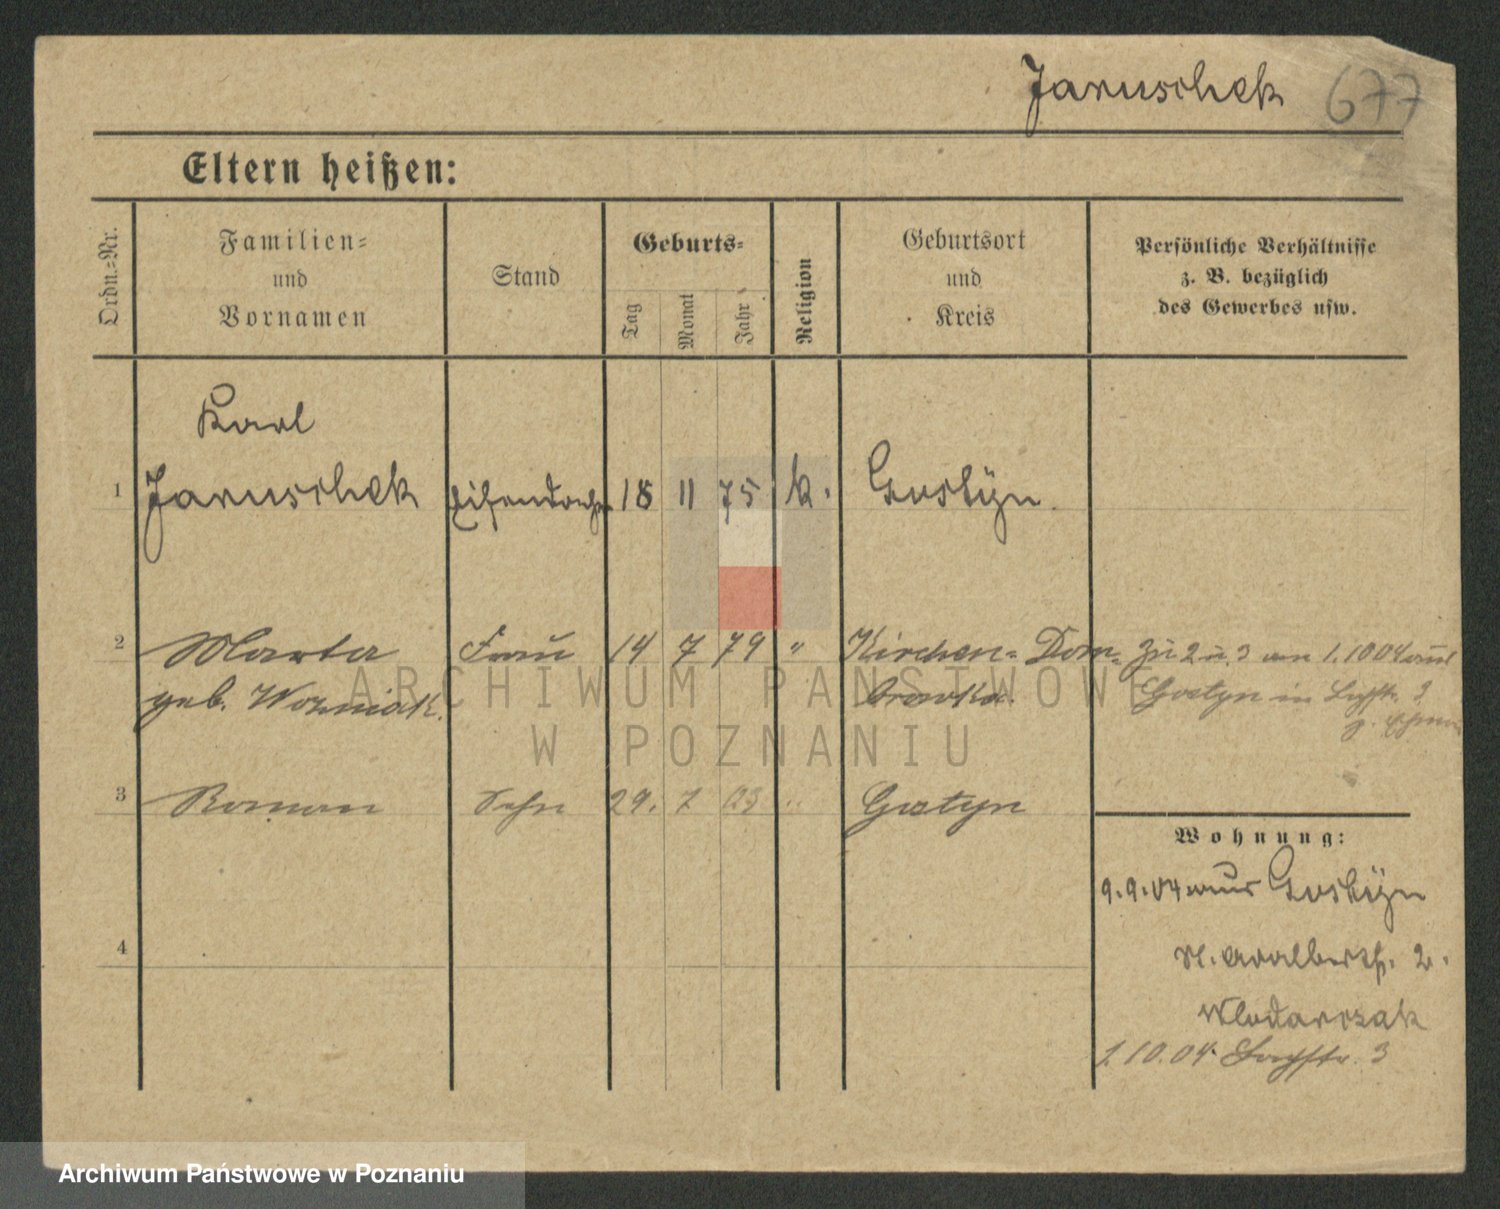 Jaruschek 677
Eltern heißen:
Ordn.=Nr.
Familien=
und
Vornamen
Stand
Geburts=
Tag
Monat
Jahr
Religion
Geburtsort
und
Kreis
Persönliche Verhältnisse
z. B. bezüglich
des Gewerbes usw.
Karl
1 Jaruschek Eisendreher 18 11 75 k. Gostÿn.
2 Marta Frau 14 7 79 " Kirchen= Dom= Zu 2 u. 3 am 1.10 04 aus
geb. Wozniak. browka. Gostyn in 3
3 Roman Sohn 29. 7 03 " Gostyn
Wohnung:
9.9.04 aus Gostÿn
2.
4
Wlodarczak
1.10.04 3
ARCHIWUM PAŃSTWOWE
W POZNANIU
Archiwum Państwowe w Poznaniu